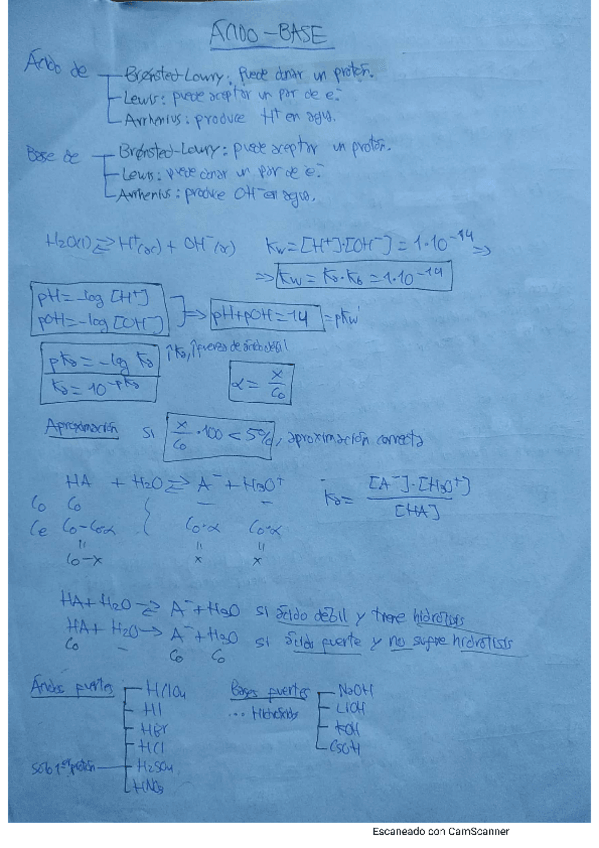 ÁCIDO-BASE
Ácido de
Brønsted-Lowry: puede donar un protón.
Lewis: puede aceptar un par de e⁻.
Arrhenius: produce H⁺ en agua.
Base de
Brønsted-Lowry: puede aceptar un protón.
Lewis: puede donar un par de e⁻.
Arrhenius: produce OH⁻ en agua.
H2O(l) ⇄ H⁺(ac) + OH⁻(ac) Kw = [H⁺]·[OH⁻] = 1·10⁻¹⁴ ⇒
⇒ Kw = Ka·Kb = 1·10⁻¹⁴
pH = -log [H⁺]
pOH = -log [OH⁻]
⇒ pH + pOH = 14 = pKw
pKa = -log Ka
Ka = 10^-pKa
↑Ka, ↑fuerza de ácido
α = x/Co
Aproximación si x/Co · 100 < 5%, aproximación correcta
HA + H2O ⇄ A⁻ + H3O⁺ Ka = [A⁻]·[H3O⁺] / [HA]
Co Co — —
Ce Co-Coα Co·α Co·α
= = =
Co-x x x
HA + H2O ⇄ A⁻ + H3O si ácido débil y tiene hidrólisis
HA + H2O → A⁻ + H3O si ácido fuerte y no sufre hidrólisis
Co — Co Co
Ácidos fuertes
HClO4
HI
HBr
HCl
solo 1er protón H2SO4
HNO3
Bases fuertes
... Hidróxidos
NaOH
LiOH
KOH
CsOH
Escaneado con CamScanner